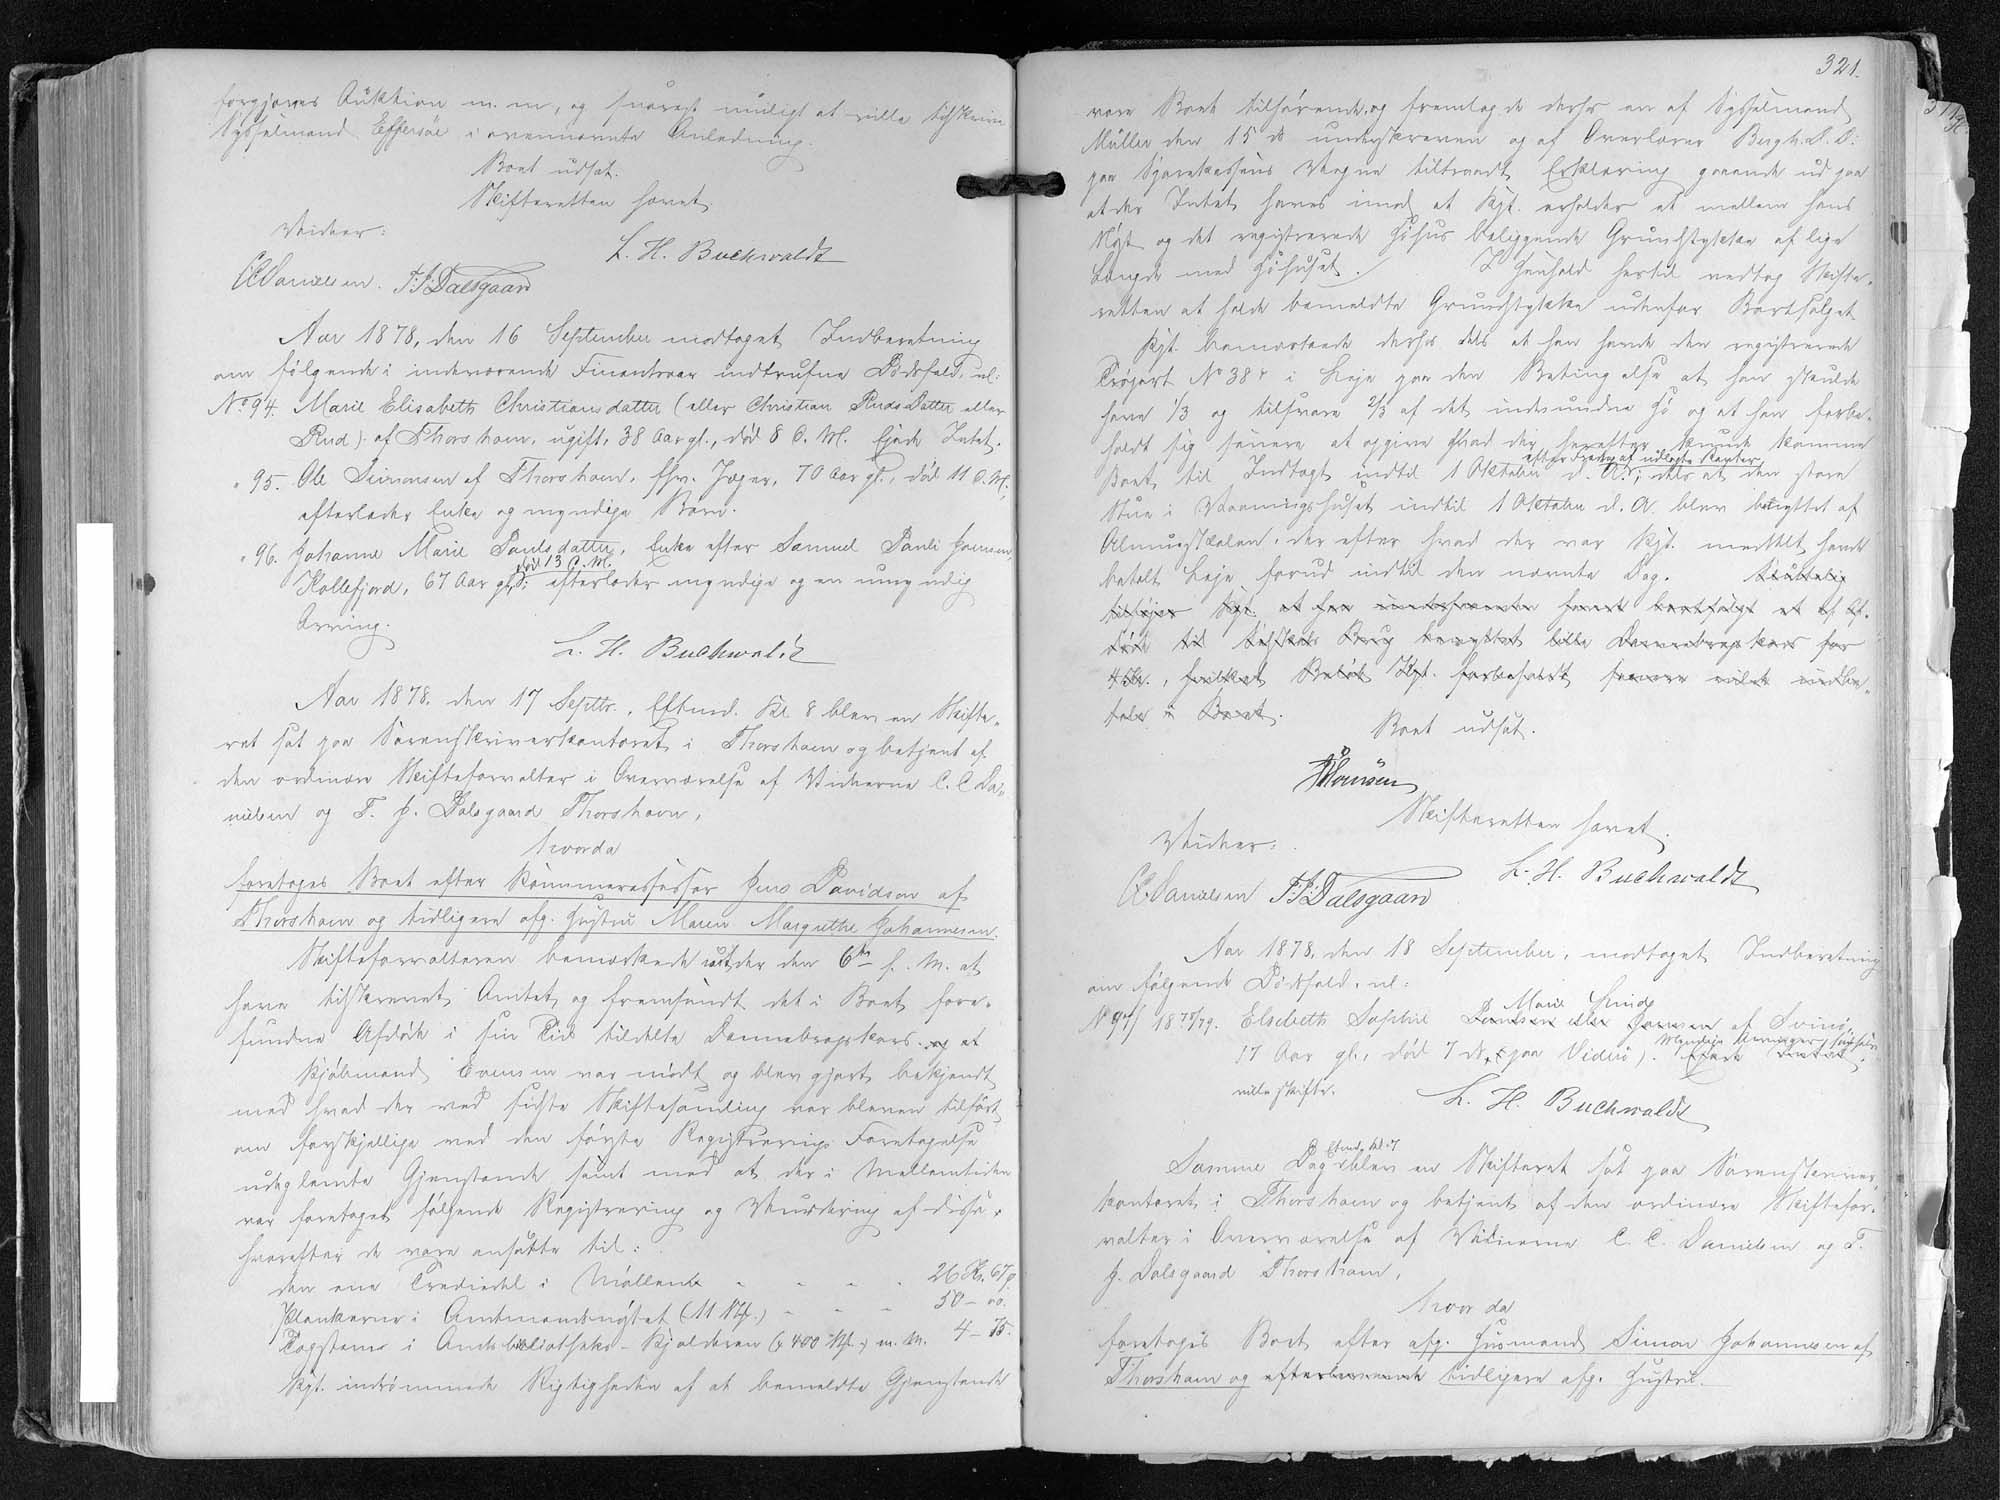 forgjæves Auktion m. m., og snarest muligt at ville tilskrive
Sysselmand Effersöe i ovennævnte Anledning.
Boet udsat.
Skifteretten hævet.
Vidner:
L. H. Buchwaldt
CCDanielsen. F.J.Dalsgaard
Aar 1878, den 16 September modtaget Indberetning
om følgende i indeværende Finantsaar indtrufne Dødsfald, nl:
No 94. Marie Elisabeth Christiansdatter (eller Christian Ruds Datter eller
Rud) af Thorshavn, ugift, 38 Aar gl., død 8 d. M. Ejede Intet.
" 95. Ole Simonsen af Thorshavn, fhv. Jæger, 70 Aar gl., død 11 d. M.,
efterlader Enke og myndige Børn.
" 96. Johanne Marie Poulsdatter, Enke efter Samuel Pauli Joensen,
død 13 d. M.
Kollefjord, 67 Aar gl., efterlader myndige og en umyndig
Arving.
L. H. Buchwaldt
Aar 1878, den 17 Septbr., Eftmd. Kl. 8 blev en Skifte-
ret sat paa Sorenskriverkontoret i Thorshavn og betjent af
den ordinære Skifteforvalter i Overværelse af Vidnerne C. C. Da-
nielsen og F. J. Dalsgaard Thorshavn,
hvorda
foretoges Boet efter Kammerassessor Jens Davidsen af
Thorshavn og tidligere afg. Hustru Maren Margrethe Johannesen.
Skifteforvalteren bemærkede under den 6te f. M. at
have tilskrevet Amtet og fremsendt det i Boet fore-
fundne Afdøde i sin Tid tildelte Dannebrogskors. og at
Kjøbmand Evensen var mødt og blev gjort bekjendt
med hvad der ved sidste Skiftesamling var bleven tilført
om forskjellige ved den første Registrerings Foretagelse
udeglemte Gjenstande samt med at der i Mellemtiden
var foretaget følgende Registrering og Vurdering af disse,
hvorefter de vare ansatte til:
den ene Trediedel i Møllen - - - - 26 Kr. 67 ø.
Plankerne i Amtmandsnøstet (11 Stk.) - - - 50 - 00.
Tagstene i Amtsbibliotheks-Kjælderen (400 Stk.) m. M. 4 - 75.
Kpt. indrømmede Rigtigheden af at bemeldte Gjenstande
321.
vare Boet tilhørende, og fremlagde derhos en af Sysselmand
Müller den 15 ds underskreven og af Overlærer Bergh. D. D:
paa Sparekassens Vegne tiltraadt Erklæring gaaende ud paa
at der Intet haves imod at Kpt. erholder et mellem hans
Nøst og det registrerede Høhus beliggende Grundstykke af lige
Længde med Høhuset. I Henhold hertil vedtog Skifte-
retten at holde bemeldte Grundstykke udenfor Bortsalget
Kpt. bemærkede derhos dels at han havde den registrerede
Trøjort No 38 r i Leje paa den Betingelse at han skulde
have 1/3 og tilsvare 2/3 af det indvundne Hø og at han forbe-
holdt sig senere at opgive hvad der herefter kunde komme
efter Fradrag af udlagte Renter
Boet til Indtægt indtil 1 Oktober d. A.; dels at den store
Stue i Vaaningshuset indtil 1 Oktober d. A. blev benyttet af
Almueskolen, der efter hvad der var Kpt. meddelt, havde
betalt Leje forud indtil den nævnte Dag.
Boet udsat.
Skifteretten hævet.
Vidner:
L. H. Buchwaldt
CCDanielsen F.J.Dalsgaard
Aar 1878, den 18 September, modtaget Indberetning
om følgende Dødsfald, nl:
Marie Lind
No 97/1878/79. Elsebeth Sophie Poulsen eller Joensen af Svinø,
17 Aar gl., død 7 ds, (paa Viderö). Myndige Arvinger, selv
ville skifte.
L. H. Buchwaldt
Eftmd. Kl. 7
Samme Dag blev en Skifteret sat paa Sorenskriver-
kontoret i Thorshavn og betjent af den ordinære Skiftefor-
valter i Overværelse af Vidnerne C. C. Danielsen og F.
J. Dalsgaard Thorshavn,
hvor da
foretoges Boet efter afg. Husmand Simon Johannesen af
Thorshavn og efterlevende tidligere afg. Hustru.